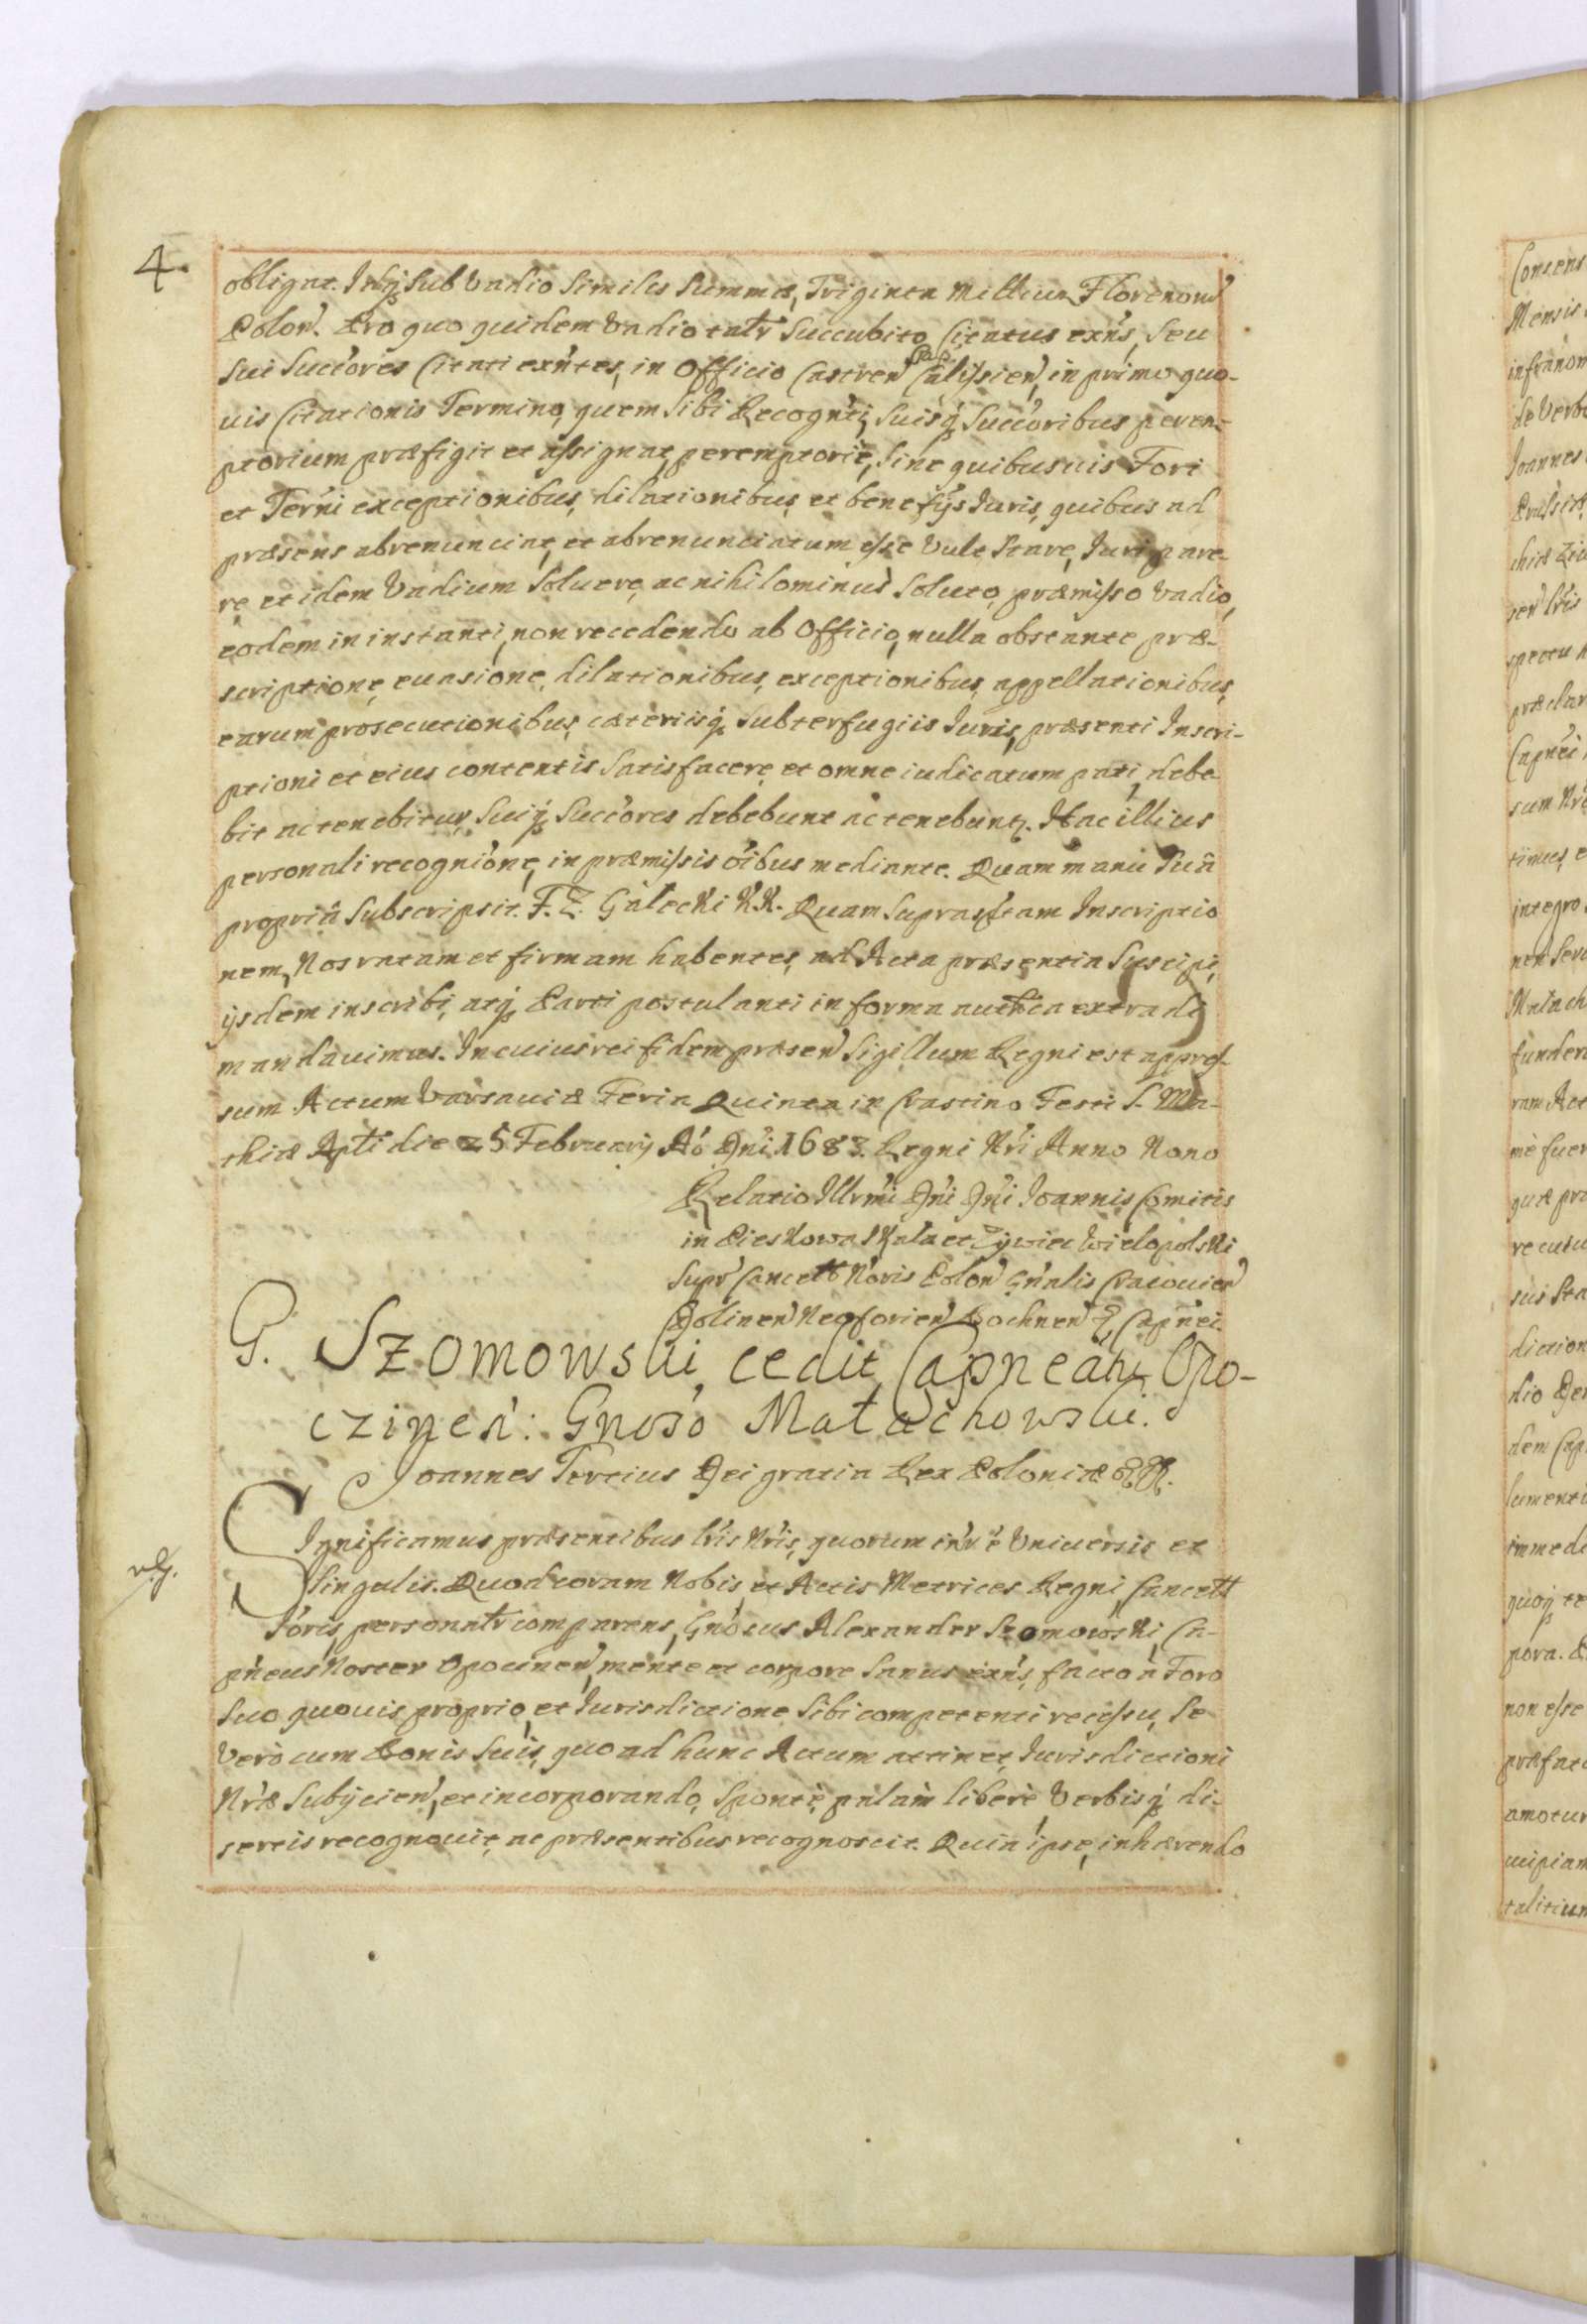 4.
obligat. Idq́ Sub Vadio Similis Summæ, Triginta Millium Florenorū
Polon̄. Pro quo quidem Vadio talr̄ Succubito, Citatus exn̄s, Seu
Sui Succōres Citati exn̄tes, in Officio Castren̄ Calissien̄, in primo quo-
uis Citationis Termino, quem Sibi Recogn̄ti, Suisq́ Succōribus perem-
ptorium præfigit et assignat, peremptorie, Sine quibusuis Fori
et Ter̄ni exceptionibus, dilationibus, et beneficijs Iuris, quibus ad
præsens abrenunciat, et abrenunciatum esse Vult Stare, Iuri pare-
re, et idem Vadium Soluere, ac nihilominus Soluto, præmisso Vadio,
eodem in instanti, non recedendo ab Officio, nulla obstante præ-
scriptione, euasione, dilationibus, exceptionibus, appellationibus,
earum prosecutionibus, cæterisq́ Subterfugiis Iuris, præsenti Inscri-
ptioni et eius contentis Satisfacere, et omne iudicatum pati, debe
bit ac tenebitur, Suiq́ Succōres debebunt ac tenebunt͛. Hac illius
personali recogniōne, in præmissis ōibus mediante. Quam manu Suâ
propriâ Subscripsit. F. Z. Gałecki K.K. Quam Suprasc̄tam Inscriptio
nem, Nos ratam et firmam habentes, ad Acta præsentia Suscipi,
ijsdem inscribi, atq́ Parti postulanti in forma auth̄ca extradi
mandauimus. In cuius rei fidem præsen̄ Sigillum Regni est appres-
sum Actum Varsauiæ Feria Quinta in Crastino Festi S. Ma-
thiæ Apłi die 25 Februarij Aō Dn̄i 1683. Regni Nr̄i Anno Nono
Relatio Illrm̄i Dn̄i Dn̄i Ioannis Comitis
in Pieskowa Skała et Zÿwiec Wielopolski
Supr̄ Cancell Nōris Polon̄ Gn̄alis Cracouien̄
Dolinen̄ Neoforien̄ Bochnen̄ &, Capn̄ei.
G. Szomowski cedit Capneatū Opo-
czinen̄: Gnoso Małachowski.
Ioannes Tertius Dei gratia Rex Poloniæ &.&.
rlg.
Significamus præsentibus lr̄is Nr̄is, quorum inr̄ē Vniuersis et
Singulis. Quod coram Nobis, et Actis Metrices Regni, Cancell
Iōris, personałr comparens, Gnōsus Alexander Szomowski, Ca-
pn̄eus Noster Opocinen̄, mente et corpore Sanus exn̄s, facto à Foro
Suo quouis proprio, et Iurisdictione Sibi competenti recessu, Se
Vero cum Bonis Suis, quo ad hunc Actum attinet, Iurisdictioni
Nr̄æ Subijcien̄, et incorporando, Sponte, palàm libere, Verbisq́ di-
sertis recognouit, ac præsentibus recognoscit. Quia ipse, inhærendo